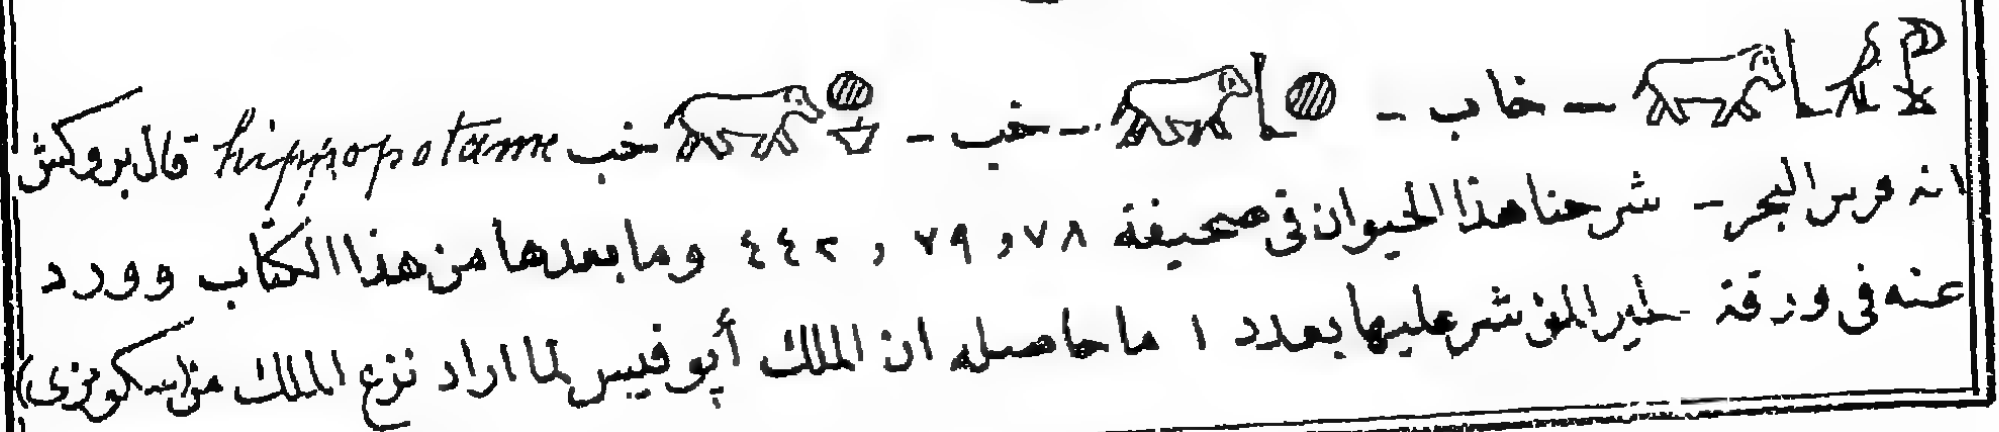 — خاب — — خب — خب hippopotame قال بروكش
انه فرس البحر — شرحنا هذا الحيوان فى صحيفة ٧٨ و ٧٩ و ٤٤٢ وما بعدها من هذا الكتاب وورد
عنه فى ورقة المؤشر عليها بعدد ١ ما حاصله ان الملك أپوفيس لما اراد نزع الملك من (سكونزى)